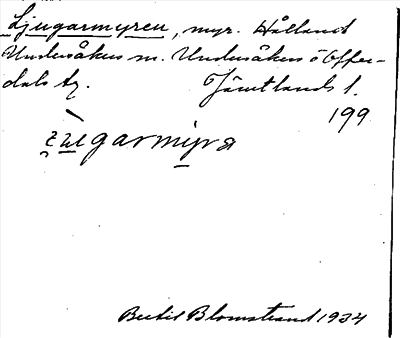 Ljugarmyren, myr. Hålland
Undersåkers sn. Undersåkers o Offer-
dals tg. Jämtlands l.
199
Bertil Blomstrand 1934